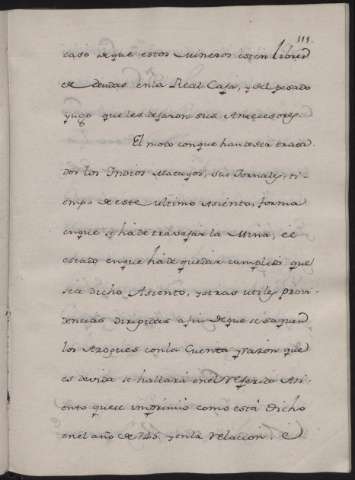 119.
caso de que estos Mineros esten libres
de deudas en la Real Caja, y del pesado
yugo que les dejaron sus Antecesores
El modo con que han de ser trata
dos los Indios Mitayos, sus Jornales, ti
empo de este ultimo Asiento, forma
en que se ha de trabajar la Mina, el
estado en que ha de quedar cumplido que
sea dicho Asiento, y otras utiles provi
dencias dirigidas a fin de que se saquen
los Azogues con la Cuenta y razon que
es devida se hallará en el referido Asi
ento que se imprimio como está dicho
en el año de 746. y en la Relacion. é